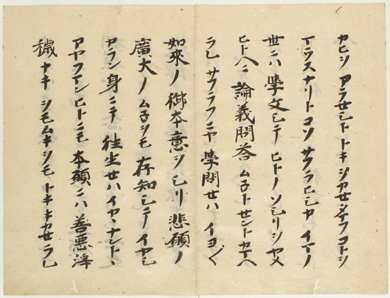 カヒヲアラセシトトキヲカセタマフコトヲ
マウスナリトコソサフラヒシカイマノ
世ニハ學文シテヒトノソシリヲヤメ
ヒトヘニ論義問答ムネトセントカマヘ
ラレサフラフニヤ學問セハイヨ〱
如來ノ御本意ヲシリ悲願ノ
廣大ノムネヲモ存知シテイヤシ
カラン身ニテ往生ハイカヽナントヽ
アヤフマンヒトニモ本願ニハ善悪淨
穢ナキヲモムキヲモトキキカセラレ